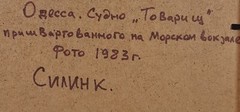 Одесса. Судно „Товарищ"
пришвартованного на Морском вокзале
Фото 1983г.
Силин К.